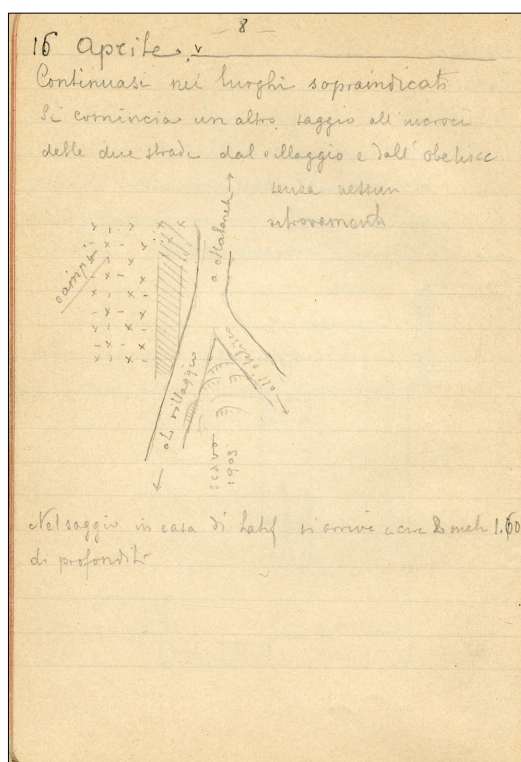 — 8 —
16 Aprile
Continuasi nei luoghi sopraindicati
Si comincia un altro saggio all'incroci
delle due strade dal villaggio e dall'obelisc
senza nessun
ritrovamento
a Matarieh
campi
al villaggio
all'obelisco
scavo
1903
Nel saggio in casa di Latif si arriva a metri 1.60
di profondità